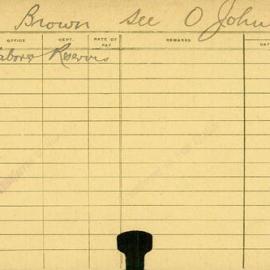 Brown see O John
OFFICE DEPT. RATE OF PAY REMARKS DAT
Labor Reservrs